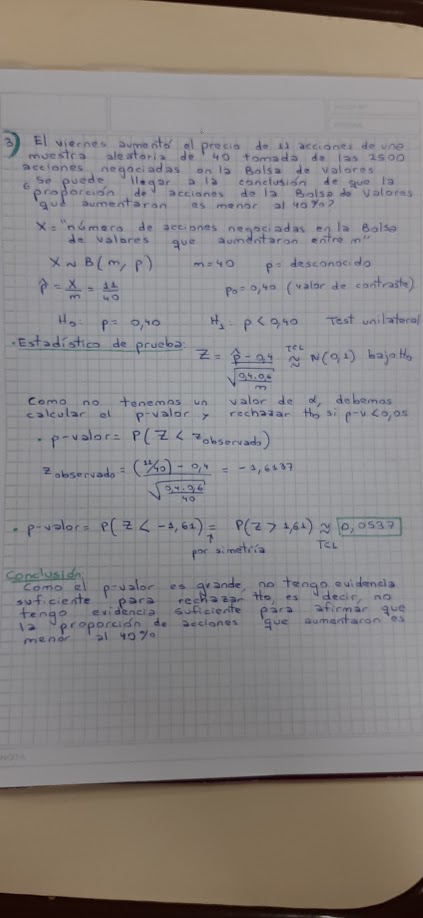 3) El viernes aumentó el precio de 11 acciones de una
muestra aleatoria de 40 tomada de las 2500
acciones negociadas en la Bolsa de Valores
Se puede llegar a la conclusión de que la
¿proporción de acciones de la Bolsa de Valores
que aumentaron es menor al 40%?
X = "número de acciones negociadas en la Bolsa
de valores que aumentaron entre m"
X ~ B(m, p) m=40 p= desconocido
p̂ = X/m = 11/40 p₀ = 0,40 (valor de contraste)
H₀: p = 0,40 H₁: p < 0,40 Test unilateral
• Estadístico de prueba: Z = (p̂ - 0,4)/√(0,4.0,6/m) TCL ≈ N(0,1) bajo H₀
Como no tenemos un valor de α, debemos
calcular el p-valor y rechazar H₀ si p-v < 0,05
• p-valor = P(Z < z observado)
z observado = ((11/40) - 0,4)/√(0,4.0,6/40) = -1,6137
• p-valor = P(Z < -1,61) = P(Z > 1,61) ≈ 0,0537
por simetría TCL
Conclusión:
Como el p-valor es grande, no tengo evidencia
suficiente para rechazar H₀, es decir, no
tengo evidencia suficiente para afirmar que
la proporción de acciones que aumentaron es
menor al 40%